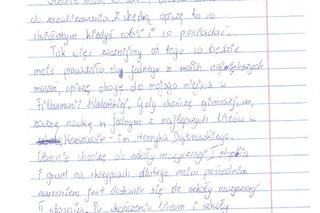 do zrealizowania. Z chęcią opiszę to co
chciałabym kiedyś robić i co posiadać.
Tak więc zacznijmy od tego co będzie
mnie prowadziło do jednego z moich największych
marzeń, opiszę drogę do mojego miejsca w
Filharmonii Gdy skończę gimnazjum,
zacznę naukę w jednym z najlepszych liceów w
im. Henryka Dąbrowskiego.
Obecnie chodzę do szkoły muzycznej I stopnia
i gram na skrzypcach, dlatego moim pośrednim
marzeniem jest dostanie się do szkoły muzycznej
II stopnia. Po ukończeniu liceum i szkoły